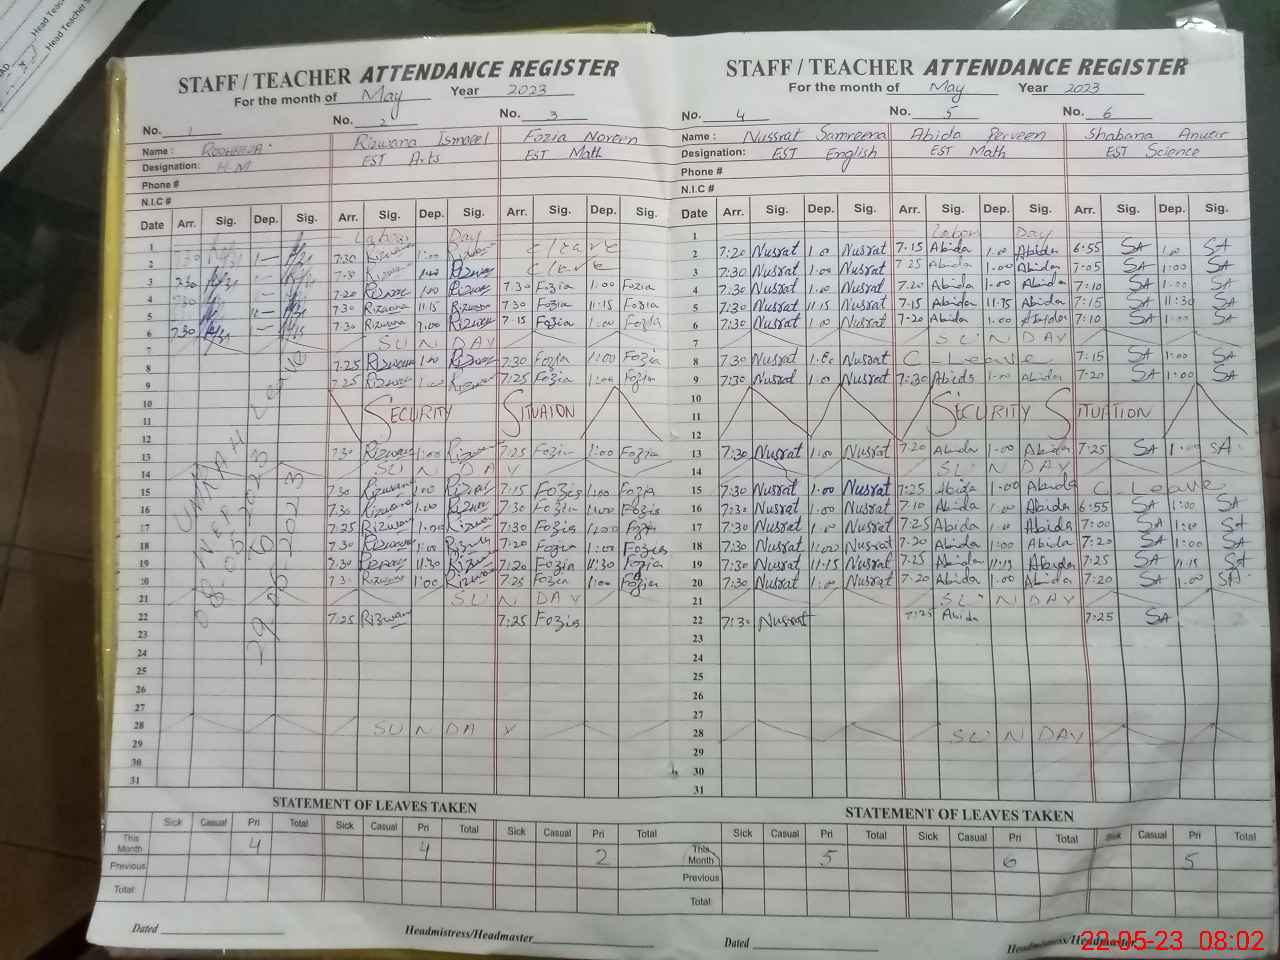 Head Teacher
Head Teacher
STAFF / TEACHER ATTENDANCE REGISTER
For the month of May Year 2023
No. 1 No. 2 No. 3
Name : Rizwana Ismaeel Fozia Noreen
Designation: H.M EST Arts EST Math
Phone #
N.I.C #
Date Arr. Sig. Dep. Sig. Arr. Sig. Dep. Sig. Arr. Sig. Dep. Sig.
1 Labour Day C leave
2 7:30 1:00 C leave
3 7:30 1- 7:30 1:00 Rizwan
4 7:20 Rizwana 1:00 7:30 Fozia 1:00 Fozia
5 7:30 Rizwana 11:15 Rizwan 7:30 Fozia 11:15 Fozia
6 7:30 1- 7:30 Rizwana 1:00 Rizwan 7:15 Fozia 1:00 Fozia
7 SUNDAY
8 7:25 Rizwan 1:00 Rizwan 7:30 Fozia 1:00 Fozia
9 7:25 Rizwan 1:00 Rizwan 7:25 Fozia 1:00 Fozia
10
11 SECURITY SITUAION
12
13 7:30 Rizwan 1:00 Rizwan 7:25 Fozia 1:00 Fozia
14 SUNDAY
15 7:30 Rizwana 1:00 Rizwan 7:15 Fozia 1:00 Fozia
16 7:30 Rizwana 1:00 Rizwan 7:30 Fozia 1:00 Fozia
17 7:25 Rizwana 1:00 Rizwan 7:30 Fozia 1:00 Fozia
18 7:30 Rizwana 1:00 Rizwan 7:20 Fozia 1:00 Fozia
19 7:30 Rizwan 11:30 Rizwan 7:20 Fozia 11:30 Fozia
20 Rizwan 1:00 Rizwan 7:25 Fozia 1:00 Fozia
21 SUNDAY
22 7:25 Rizwan 7:25 Fozia
23
24
25
26
27
28 SUNDAY
29
30
31
UMRAH Leave
08-05-2023
29-05-2023
STATEMENT OF LEAVES TAKEN
Sick Casual Pri Total Sick Casual Pri Total Sick Casual Pri Total
This Month 4 4 2
Previous
Total:
Dated Headmistress/Headmaster
STAFF / TEACHER ATTENDANCE REGISTER
For the month of May Year 2023
No. 4 No. 5 No. 6
Name : Nussrat Samreena Abida Perveen Shabana Anwar
Designation: EST English EST Math EST Science
Phone #
N.I.C #
Date Arr. Sig. Dep. Sig. Arr. Sig. Dep. Sig. Arr. Sig. Dep. Sig.
1 Labour Day
2 7:20 Nusrat 1:00 Nusrat 7:15 Abida 1:00 Abida 6:55 SA 1:00 SA
3 7:30 Nusrat 1:00 Nusrat 7:25 Abida 1:00 Abida 7:05 SA 1:00 SA
4 7:30 Nusrat 1:00 Nusrat 7:20 Abida 1:00 Abida 7:10 SA 1:00 SA
5 7:30 Nusrat 11:15 Nusrat 7:15 Abida 11:15 Abida 7:15 SA 11:30 SA
6 7:30 Nusrat 1:00 Nusrat 7:20 Abida 1:00 Abida 7:10 SA 1:00 SA
7 SUNDAY
8 7:30 Nusrat 1:00 Nusrat C-Leave 7:15 SA 1:00 SA
9 7:30 Nusrat 1:00 Nusrat 7:30 Abida 1:00 Abida 7:20 SA 1:00 SA
10
11 SECURITY SITUATION
12
13 7:30 Nusrat 1:00 Nusrat 7:20 Abida 1:00 Abida 7:25 SA 1:00 SA
14 SUNDAY
15 7:30 Nusrat 1:00 Nusrat 7:25 Abida 1:00 Abida C-Leave
16 7:30 Nusrat 1:00 Nusrat 7:10 Abida 1:00 Abida 6:55 SA 1:00 SA
17 7:30 Nusrat 1:00 Nusrat 7:25 Abida 1:00 Abida 7:00 SA 1:00 SA
18 7:30 Nusrat 1:00 Nusrat 7:20 Abida 1:00 Abida 7:20 SA 1:00 SA
19 7:30 Nusrat 11:15 Nusrat 7:25 Abida 11:15 Abida 7:25 SA 11:15 SA
20 7:30 Nusrat 1:00 Nusrat 7:20 Abida 1:00 Abida 7:20 SA 1:00 SA
21 SUNDAY
22 7:30 Nusrat 7:25 Abida 7:25 SA
23
24
25
26
27
28 SUNDAY
29
30
31
STATEMENT OF LEAVES TAKEN
Sick Casual Pri Total Sick Casual Pri Total Sick Casual Pri Total
This Month 5 6 5
Previous
Total:
Dated Headmistress/Headmaster
22-05-23 08:02